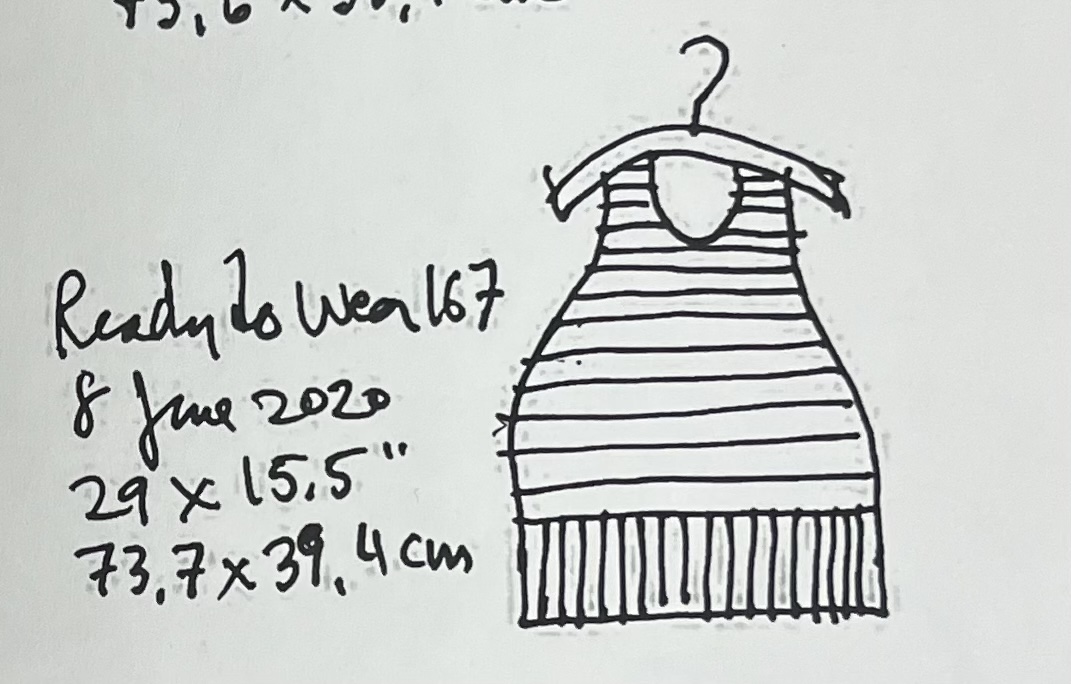 Ready to Wear 167
8 June 2020
29 x 15.5"
73.7 x 39.4 cm